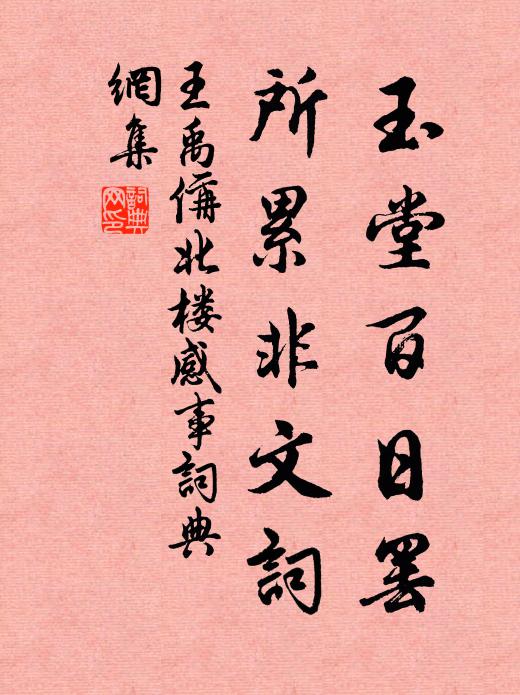 玉堂百日罢
所累非文词
王禹偁北楼感事词典
網集
詞典網印